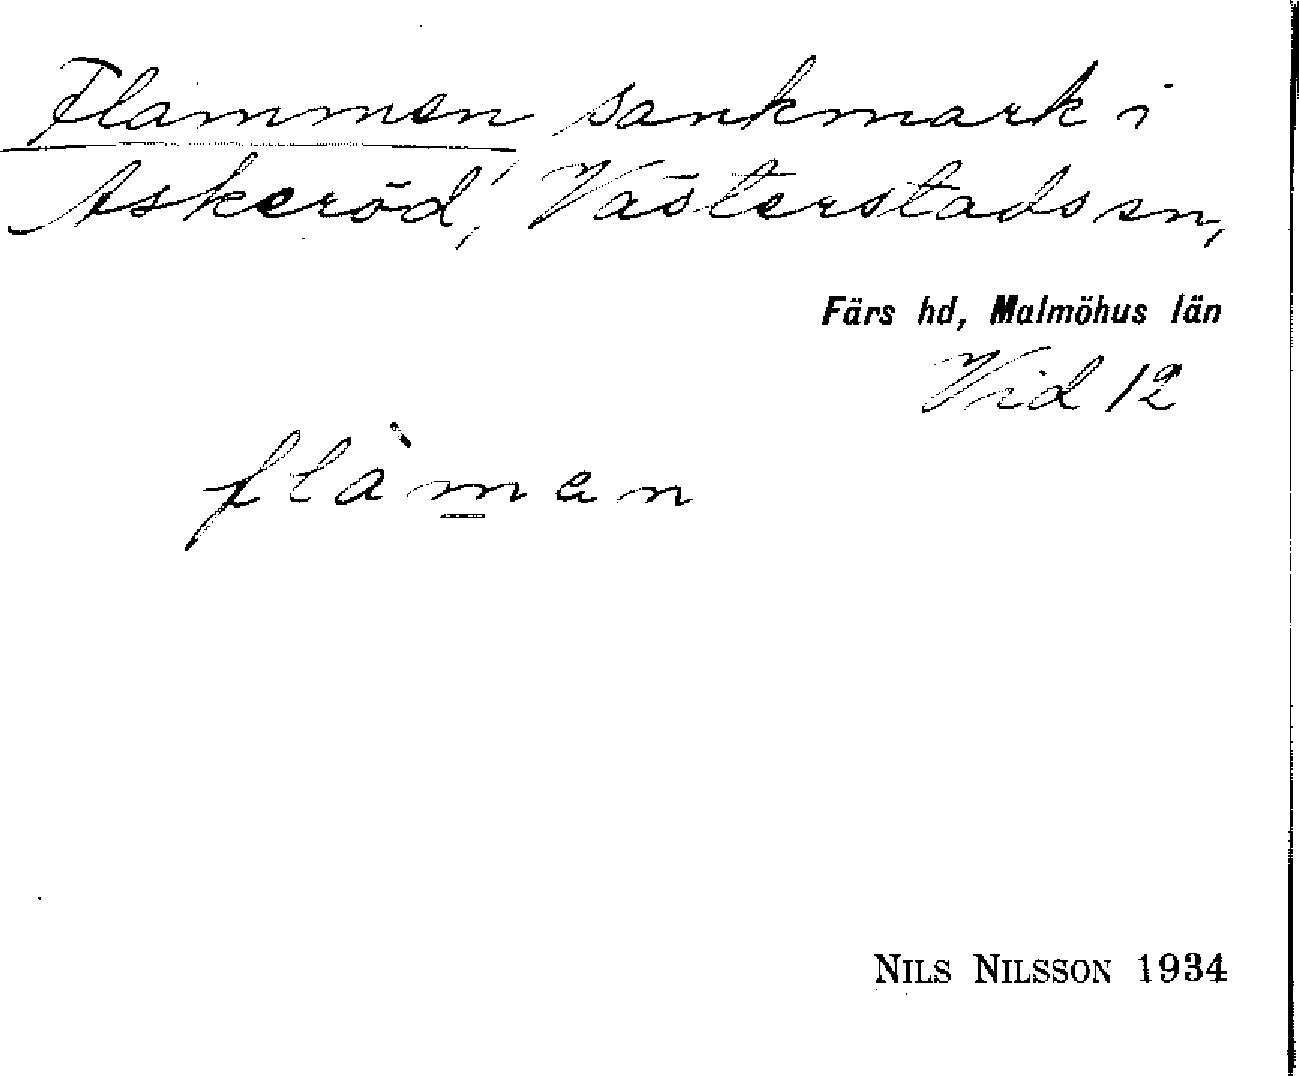 Flammen, sankmark i
Askeröd, Västerstads sn,
Färs hd, Malmöhus län
Vid 12
flàm̲en
NILS NILSSON 1934